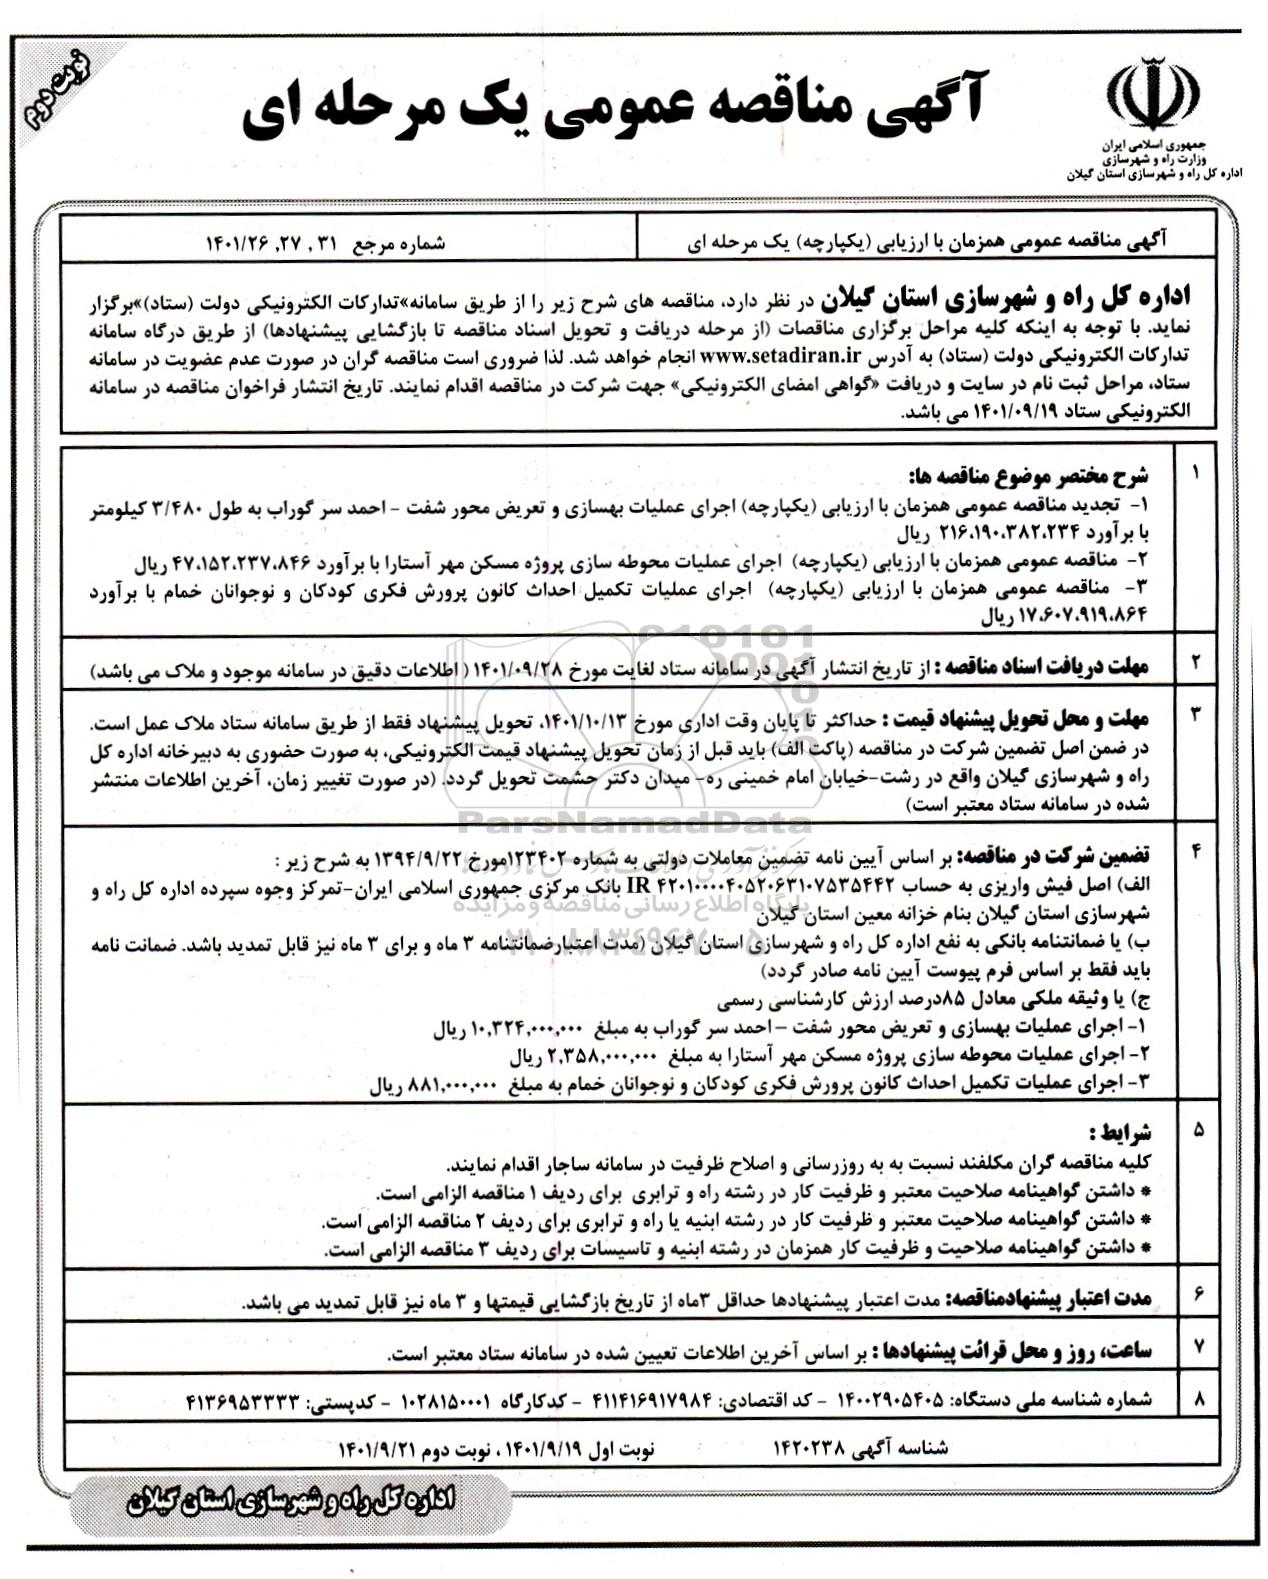 نوبت دوم
آگهی مناقصه عمومی یک مرحله ای
جمهوری اسلامی ایران
وزارت راه و شهرسازی
اداره کل راه و شهرسازی استان گیلان
آگهی مناقصه عمومی همزمان با ارزیابی (یکپارچه) یک مرحله ای
شماره مرجع ۳۱ ,۲۷ ,۱۴۰۱/۲۶
اداره کل راه و شهرسازی استان گیلان در نظر دارد، مناقصه های شرح زیر را از طریق سامانه»تدارکات الکترونیکی دولت (ستاد)»برگزار
نماید. با توجه به اینکه کلیه مراحل برگزاری مناقصات (از مرحله دریافت و تحویل اسناد مناقصه تا بازگشایی پیشنهادها) از طریق درگاه سامانه
تدارکات الکترونیکی دولت (ستاد) به آدرس www.setadiran.ir انجام خواهد شد. لذا ضروری است مناقصه گران در صورت عدم عضویت در سامانه
ستاد، مراحل ثبت نام در سایت و دریافت «گواهی امضای الکترونیکی» جهت شرکت در مناقصه اقدام نمایند. تاریخ انتشار فراخوان مناقصه در سامانه
الکترونیکی ستاد ۱۴۰۱/۰۹/۱۹ می باشد.
۱
شرح مختصر موضوع مناقصه ها:
۱- تجدید مناقصه عمومی همزمان با ارزیابی (یکپارچه) اجرای عملیات بهسازی و تعریض محور شفت - احمد سر گوراب به طول ۳/۴۸۰ کیلومتر
با برآورد ۲۱۶،۱۹۰،۳۸۲،۲۳۴ ریال
۲- مناقصه عمومی همزمان با ارزیابی (یکپارچه) اجرای عملیات محوطه سازی پروژه مسکن مهر آستارا با برآورد ۴۷،۱۵۲،۲۳۷،۸۴۶ ریال
۳- مناقصه عمومی همزمان با ارزیابی (یکپارچه) اجرای عملیات تکمیل احداث کانون پرورش فکری کودکان و نوجوانان خمام با برآورد
۱۷،۶۰۷،۹۱۹،۸۶۴ ریال
۲
مهلت دریافت اسناد مناقصه : از تاریخ انتشار آگهی در سامانه ستاد لغایت مورخ ۱۴۰۱/۰۹/۲۸ ( اطلاعات دقیق در سامانه موجود و ملاک می باشد)
۳
مهلت و محل تحویل پیشنهاد قیمت : حداکثر تا پایان وقت اداری مورخ ۱۴۰۱/۱۰/۱۳، تحویل پیشنهاد فقط از طریق سامانه ستاد ملاک عمل است.
در ضمن اصل تضمین شرکت در مناقصه (پاکت الف) باید قبل از زمان تحویل پیشنهاد قیمت الکترونیکی، به صورت حضوری به دبیرخانه اداره کل
راه و شهرسازی گیلان واقع در رشت-خیابان امام خمینی ره- میدان دکتر حشمت تحویل گردد. (در صورت تغییر زمان، آخرین اطلاعات منتشر
شده در سامانه ستاد معتبر است)
ParsNamadData
۴
تضمین شرکت در مناقصه: بر اساس آیین نامه تضمین معاملات دولتی به شماره ۱۲۳۴۰۲مورخ ۱۳۹۴/۹/۲۲ به شرح زیر :
الف) اصل فیش واریزی به حساب IR ۴۲۰۱۰۰۰۰۴۰۵۲۰۶۳۱۰۷۵۳۵۴۴۲ بانک مرکزی جمهوری اسلامی ایران-تمرکز وجوه سپرده اداره کل راه و
پایگاه اطلاع رسانی مناقصه و مزایده
شهرسازی استان گیلان بنام خزانه معین استان گیلان
ب) یا ضمانتنامه بانکی به نفع اداره کل راه و شهرسازی استان گیلان (مدت اعتبارضمانتنامه ۳ ماه و برای ۳ ماه نیز قابل تمدید باشد. ضمانت نامه
باید فقط بر اساس فرم پیوست آیین نامه صادر گردد)
ج) یا وثیقه ملکی معادل ۸۵درصد ارزش کارشناسی رسمی
۱- اجرای عملیات بهسازی و تعریض محور شفت - احمد سر گوراب به مبلغ ۱۰,۳۲۴,۰۰۰,۰۰۰ ریال
۲- اجرای عملیات محوطه سازی پروژه مسکن مهر آستارا به مبلغ ۲,۳۵۸,۰۰۰,۰۰۰ ریال
۳- اجرای عملیات تکمیل احداث کانون پرورش فکری کودکان و نوجوانان خمام به مبلغ ۸۸۱,۰۰۰,۰۰۰ ریال
۵
شرایط :
کلیه مناقصه گران مکلفند نسبت به به روزرسانی و اصلاح ظرفیت در سامانه ساجار اقدام نمایند.
* داشتن گواهینامه صلاحیت معتبر و ظرفیت کار در رشته راه و ترابری برای ردیف ۱ مناقصه الزامی است.
* داشتن گواهینامه صلاحیت معتبر و ظرفیت کار در رشته ابنیه یا راه و ترابری برای ردیف ۲ مناقصه الزامی است.
* داشتن گواهینامه صلاحیت و ظرفیت کار همزمان در رشته ابنیه و تاسیسات برای ردیف ۳ مناقصه الزامی است.
۶
مدت اعتبار پیشنهادمناقصه: مدت اعتبار پیشنهادها حداقل ۳ماه از تاریخ بازگشایی قیمتها و ۳ ماه نیز قابل تمدید می باشد.
۷
ساعت، روز و محل قرائت پیشنهادها : بر اساس آخرین اطلاعات تعیین شده در سامانه ستاد معتبر است.
۸
شماره شناسه ملی دستگاه: ۱۴۰۰۲۹۰۵۴۰۵ - کد اقتصادی: ۴۱۱۴۱۶۹۱۷۹۸۴ - کدکارگاه ۱۰۲۸۱۵۰۰۰۱ - کدپستی: ۴۱۳۶۹۵۳۳۳۳
شناسه آگهی ۱۴۲۰۲۳۸
نوبت اول ۱۴۰۱/۹/۱۹ ، نوبت دوم ۱۴۰۱/۹/۲۱
اداره کل راه و شهرسازی استان گیلان